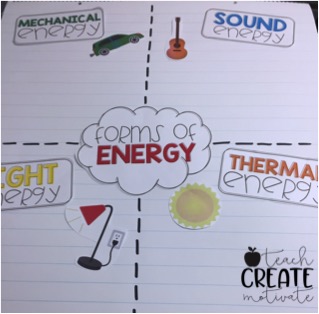 MECHANICAL
energy
SOUND
energy
forms of
ENERGY
IGHT
energy
THERMA
energy
teach
CREATE
motivate